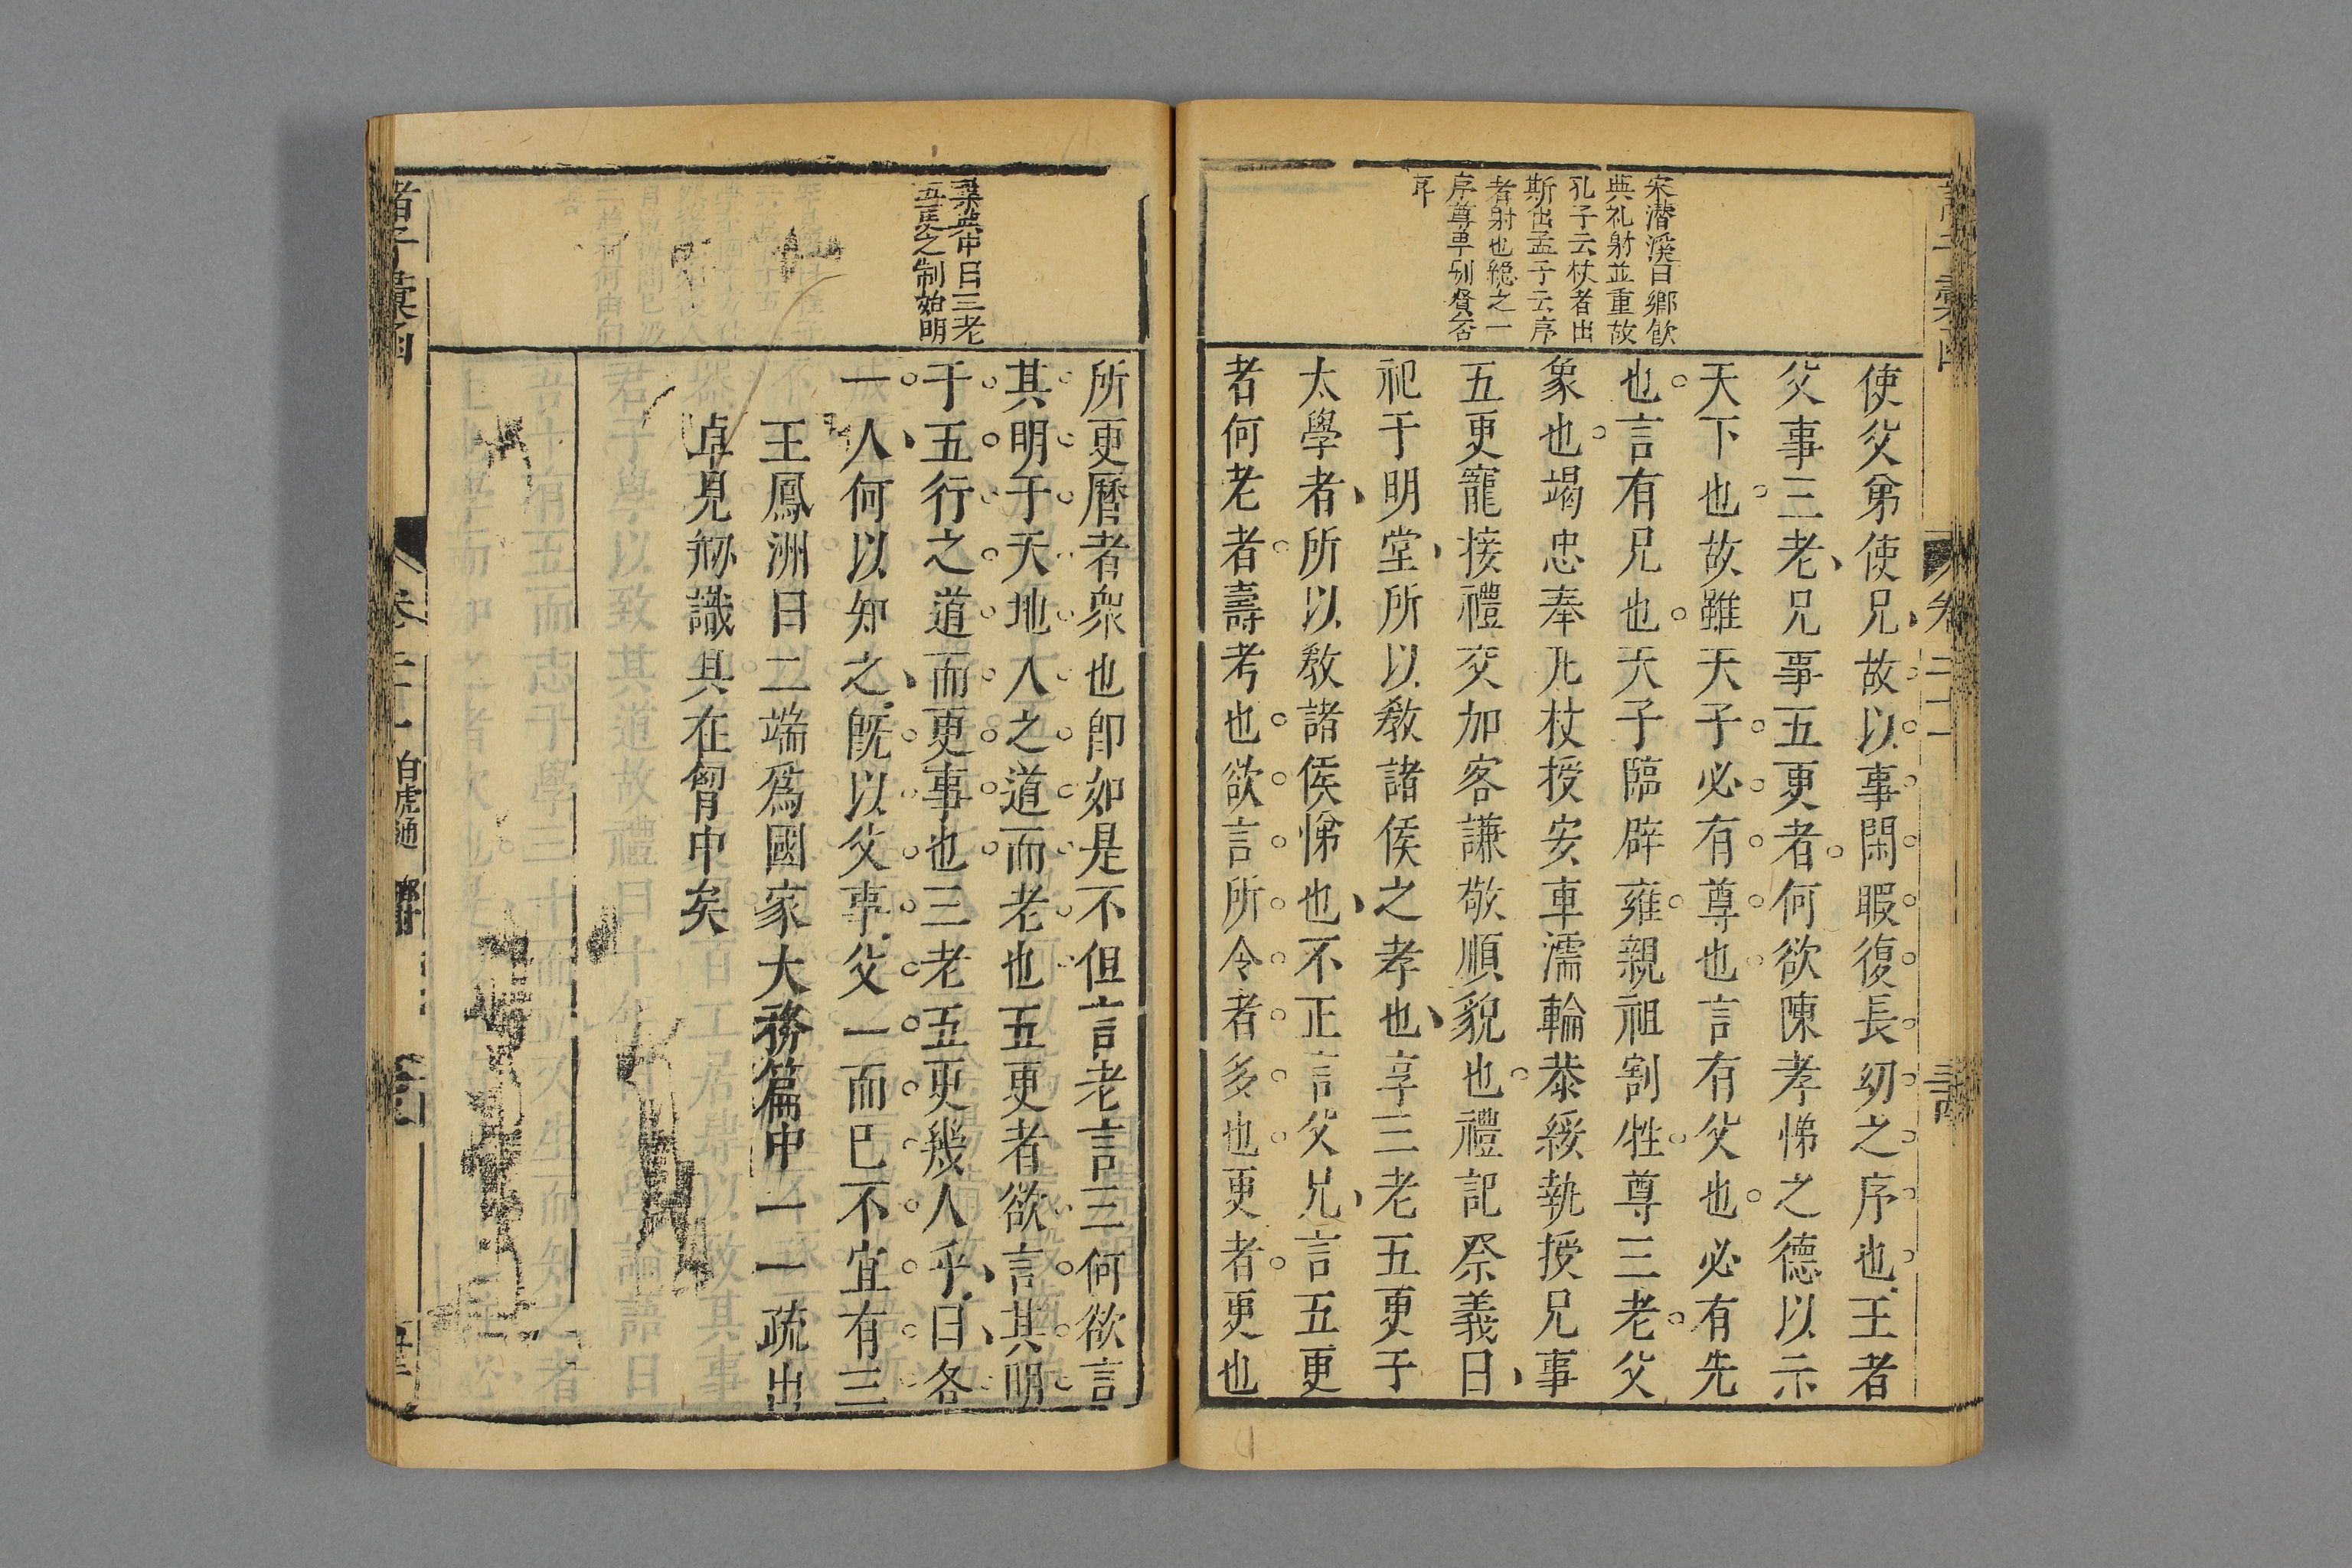 宋潛溪曰鄉飲
典礼射並重故
孔子云杖者出
斯出孟子云序
者射也總之一
序尊卑别賢否
耳
使父弟使兄故以事閑暇復長幼之序也王者
父事三老兄事五更者何欲陳孝悌之德以示
天下也故雖天子必有尊也言有父也必有先
也言有兄也天子臨辟雍親祖割牲尊三老父
象也竭忠奉几杖授安車濡輪恭綏執授兄事
五更寵接禮交加客謙敬順貌也禮記祭義曰
祀于明堂所以教諸侯之孝也享三老五更于
太學者所以教諸侯悌也不正言父兄言五更
者何老者壽考也欲言所令者多也更者更也
中曰三老
五更之制始明
所更曆者衆也卽如是不但言老言三何欲言
其明于天地人之道而老也五更者欲言其明
于五行之道而更事也三老五更幾人乎曰各
一人何以知之旣以父事父一而已不宜有三
王鳳洲曰二端爲國家大務篇中一一疏出
卓見
識具在胷中矣
諸子彙函
卷二十一
白虎通